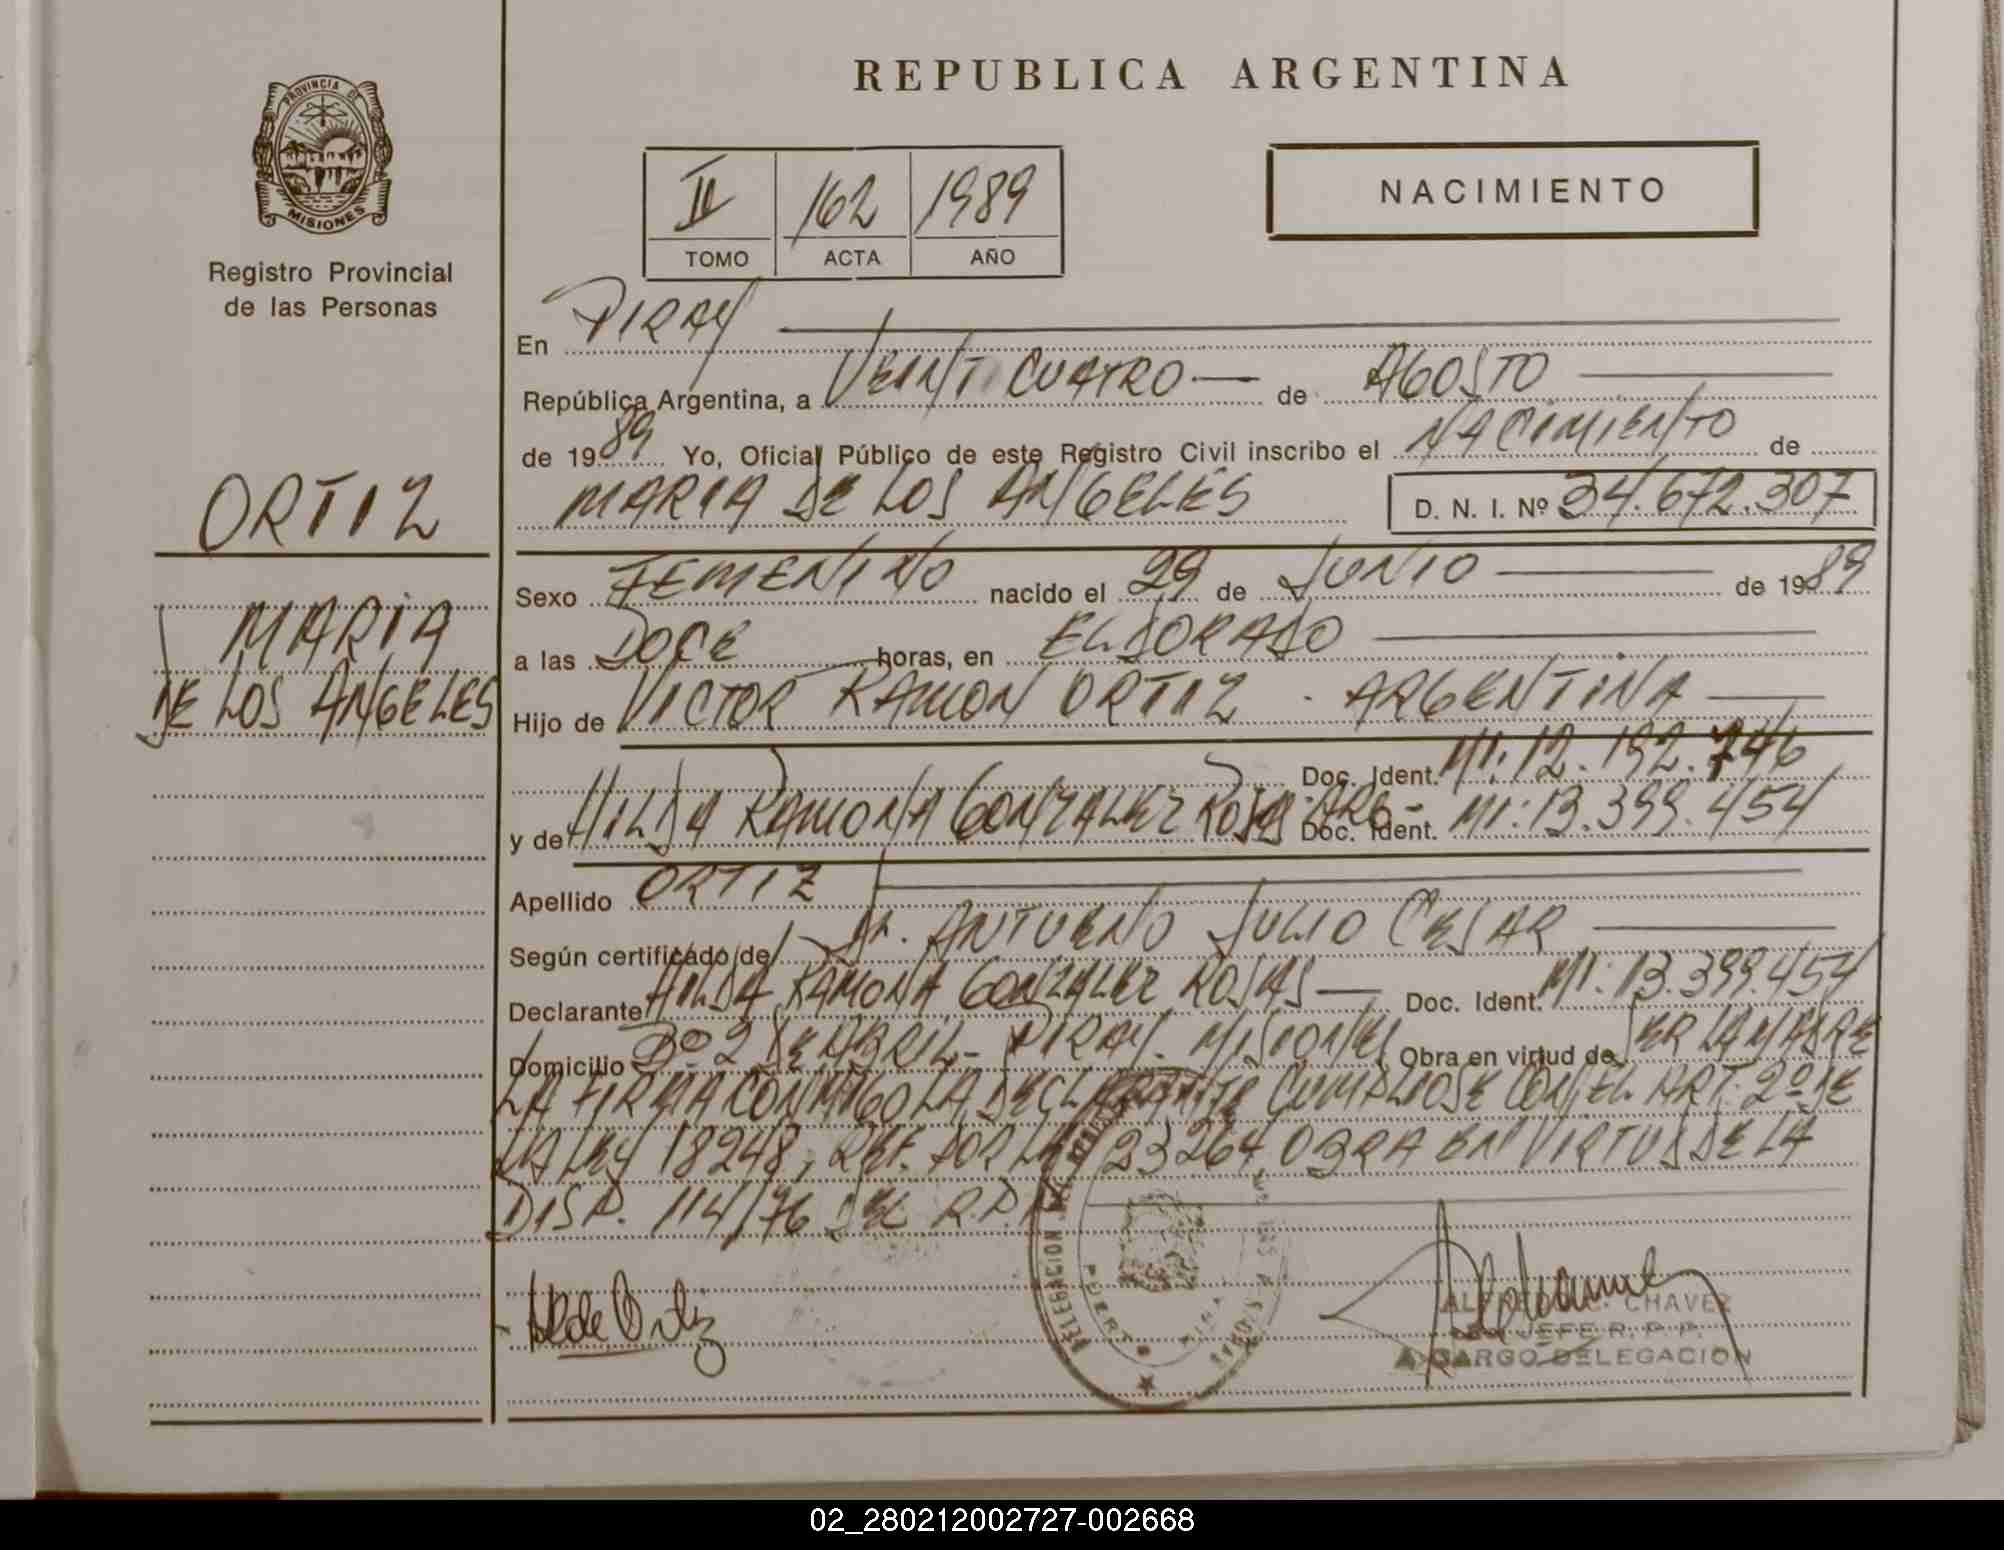 PROVINCIA DE
MISIONES
Registro Provincial
de las Personas
ORTIZ
MARIA
DE LOS ANGELES
REPUBLICA ARGENTINA
II 162 1989
TOMO ACTA AÑO
NACIMIENTO
En PIRAY
República Argentina, a VEINTICUATRO de AGOSTO
de 1989 Yo, Oficial Público de este Registro Civil inscribo el NACIMIENTO de
MARIA DE LOS ANGELES D. N. I. Nº 34.672.307
Sexo FEMENINO nacido el 29 de JUNIO de 1989
a las DOCE horas, en ELDORADO
Hijo de VICTOR RAMON ORTIZ - ARGENTINA
Doc. Ident. MI: 12.192.746
y de HILDA RAMONA GONZALEZ ROSAS ARG - Doc. Ident. MI: 13.399.454
Apellido ORTIZ
Según certificado de Dr. ANTUENO JULIO CESAR
Declarante HILDA RAMONA GONZALEZ ROSAS Doc. Ident. MI: 13.399.454
Domicilio Bº 2 DE ABRIL - PIRAY - MISIONES Obra en virtud de SER LA MADRE
LA FIRMA CONMIGO LA DECLARANTE CUMPLIOSE CON EL ART. 2º DE
LA LEY 18248, REF. POR LEY 23264, OBRA EN VIRTUD DE LA
DISP. 114/76 DEL R.P.P.
H de Ortiz
DELEGACION
ALFREDO C. CHAVEZ
JEFE R. P. P.
A CARGO DELEGACION
02_280212002727-002668